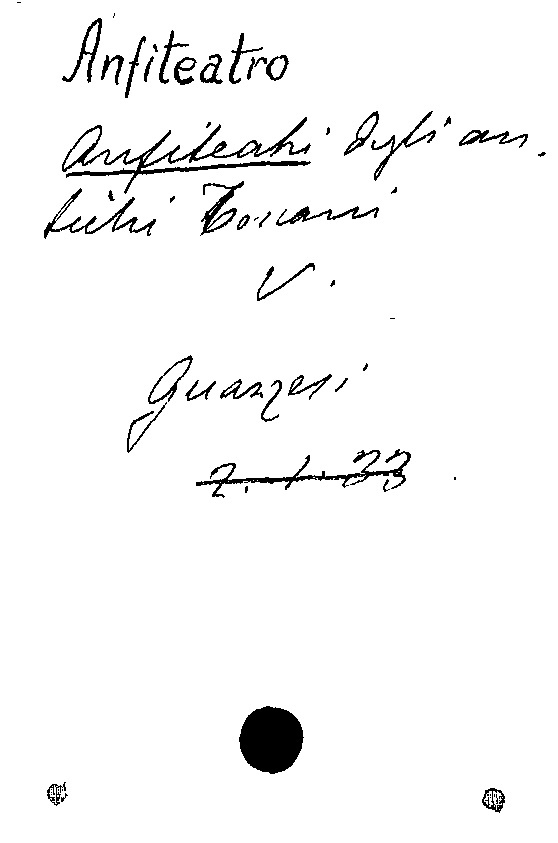 Anfiteatro
Anfiteatri degli an-
tichi Toscani
V.
Guazzesi
2.1.33